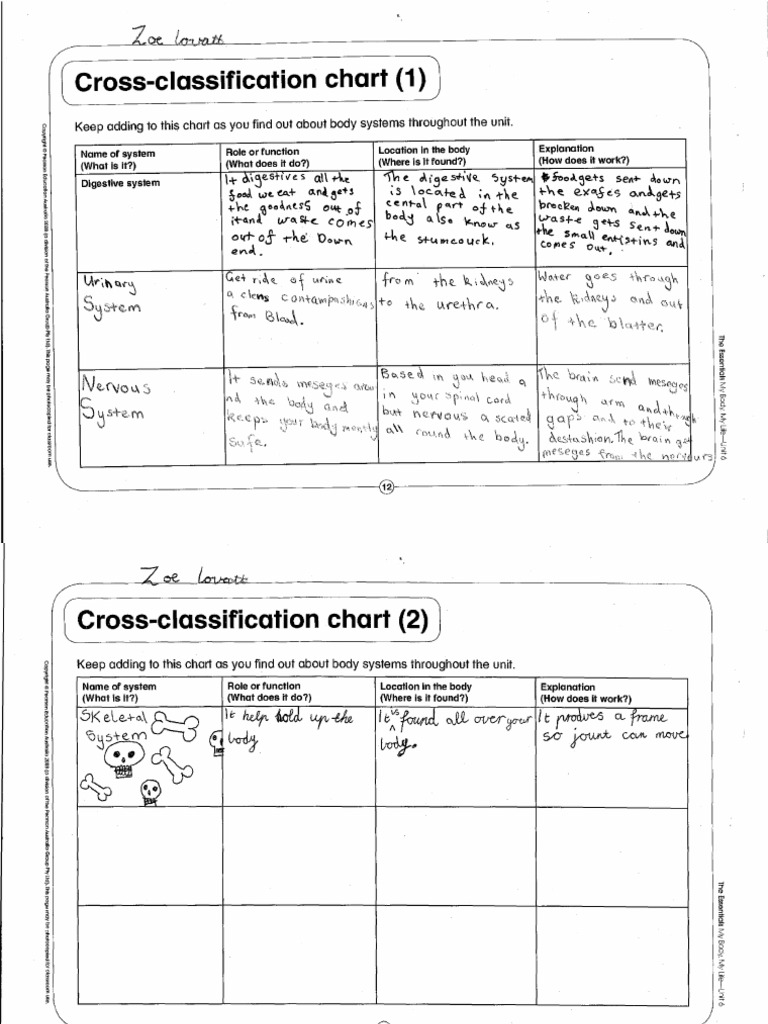 Zoe Lovatt
Cross-classification chart (1)
Keep adding to this chart as you find out about body systems throughout the unit.
Name of system
(What is it?)
Role or function
(What does it do?)
Location in the body
(Where is it found?)
Explanation
(How does it work?)
Digestive system
It digestives all the
food we eat and gets
the goodness out of
it and waste comes
out of the Down
end.
The digestive System
is located in the
central part of the
body also know as
the stumcouck.
food gets sent down
the exafes and gets
brocken down and the
waste gets sent down
the small entistins and
comes out.
Urinary
System
Get ride of urine
a clens contampashions
from Blood.
from the kidneys
to the urethra.
Water goes through
the kidneys and out
of the blatter.
Nervous
System
It sends meseges arou
nd the body and
keeps your body mently
safe.
Based in you head a
in your spinal cord
but nervous a scated
all round the body.
The brain send meseges
through arm and through
gaps and to their
destashion. The brain get
meseges from the nervours
12
The Essentials: My Body, My Life—Unit 6
Zoe Lovatt
Cross-classification chart (2)
Keep adding to this chart as you find out about body systems throughout the unit.
Name of system
(What is it?)
Role or function
(What does it do?)
Location in the body
(Where is it found?)
Explanation
(How does it work?)
Skeletal
System
It help hold up the
body
It is found all over your
body.
It produes a frame
so jount can move
The Essentials: My Body, My Life—Unit 6